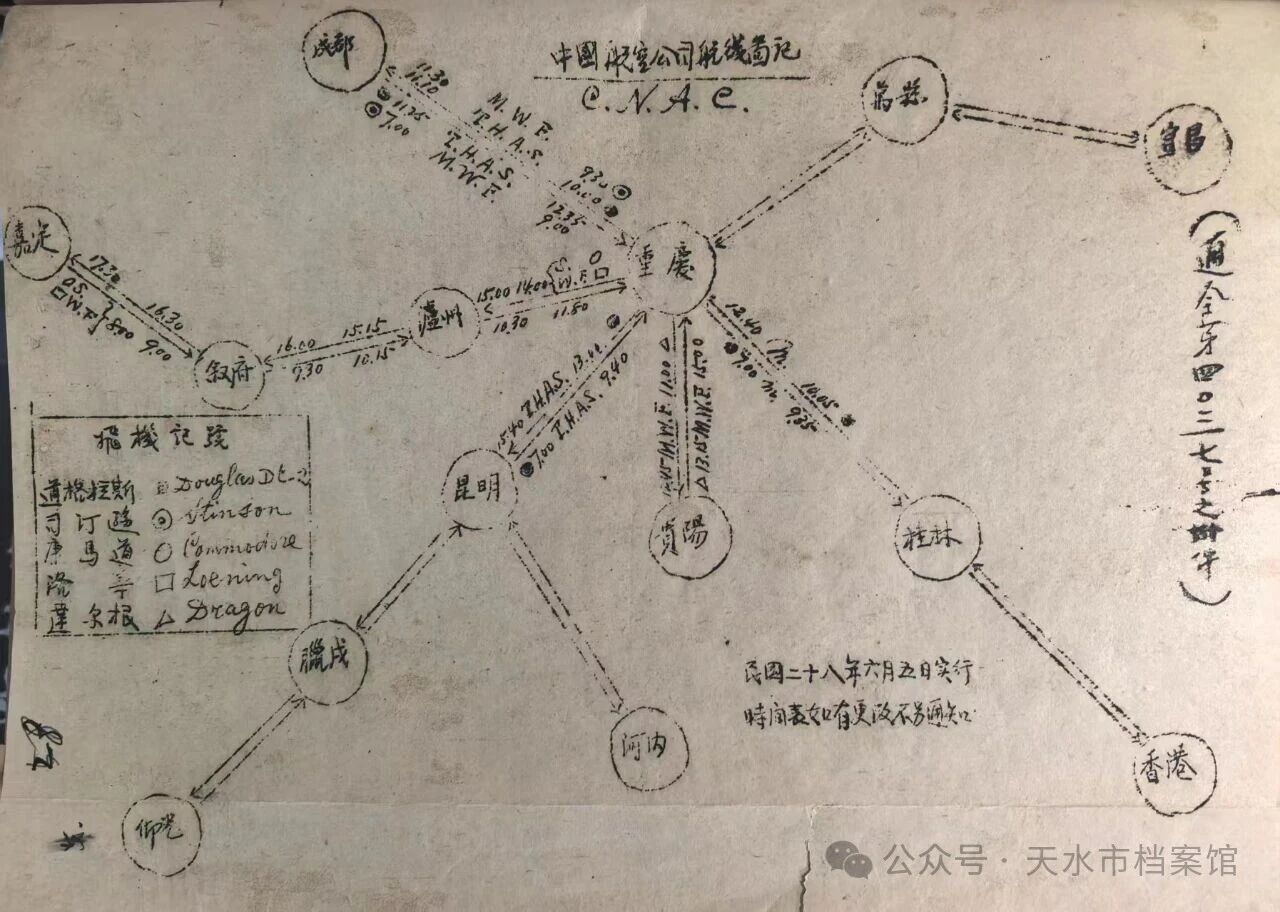 中國航空公司航綫圖記
C.N.A.C.
成都
萬縣
宜昌
嘉定
重慶
瀘州
叙府
昆明
貴陽
桂林
臘戍
河内
香港
仰光
11.30
11.10
11.25
7.00
M.W.F.
T.H.A.S.
T.H.A.S.
M.W.F.
9.30
10.00
12.35
9.00
17.30
16.30
O S.
□ W.F.
8.00
9.00
16.00
15.15
9.30
10.15
15.00 14.00
S.
W.F.
10.30
15.40 T.H.A.S. 13.00
7.00 T.H.A.S. 9.40
M.W.F. 11.00
13.15 M.W.F. 15.00
12.40
10.05
7.00
9.25
飛機記號
道格拉斯 Douglas DC-2
司汀遜 ◎ Stinson
康馬道 ○ Commodore
□ Loening
達尔根 △ Dragon
民國二十八年六月五日实行
時间表如有更改不另通知
(通令第四〇三七号之附件)
公众号 · 天水市档案馆